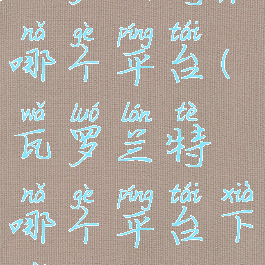 nǎ gè píng tái
哪个平台(
wǎ luó lán tè
瓦罗兰特
nǎ gè píng tái xià
哪个平台下